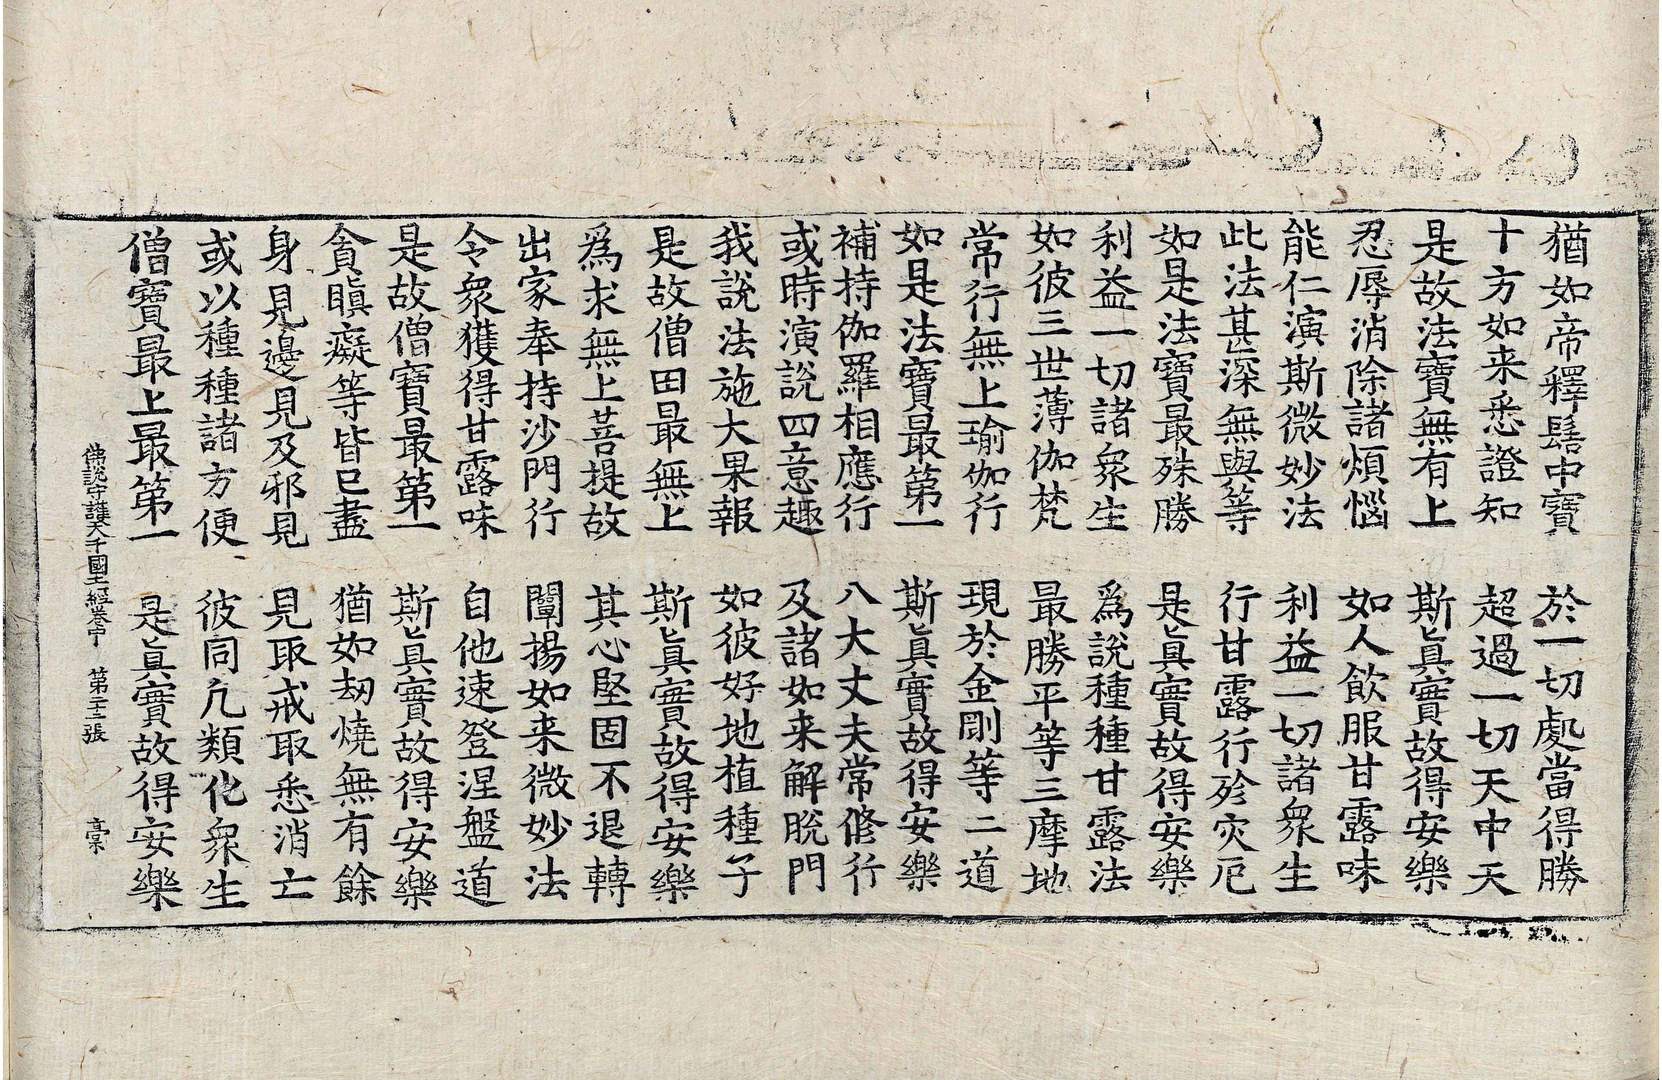 猶如帝釋髻中寶　於一切處當得勝
十方如来悉證知　超過一切天中天
是故法寶無有上　斯眞實故得安樂
忍辱消除諸煩惱　如人飮服甘露味
能仁演斯微妙法　利益一切諸衆生
此法甚深無與等　行甘露行殄灾厄
如是法寶最殊勝　是眞實故得安樂
利益一切諸衆生　爲說種種甘露法
如彼三世薄伽梵　最勝平等三摩地
常行無上瑜伽行　現於金剛等二道
如是法寶最第一　斯眞實故得安樂
補持伽羅相應行　八大丈夫常修行
或時演說四意趣　及諸如来解脫門
我說法施大果報　如彼好地植種子
是故僧田最無上　斯眞實故得安樂
爲求無上菩提故　其心堅固不退轉
出家奉持沙門行　闡揚如来微妙法
令衆獲得甘露味　自他速登涅盤道
是故僧寶最第一　斯眞實故得安樂
貪瞋癡等皆已盡　猶如劫燒無有餘
身見邊見及邪見　見取戒取悉消亡
或以種種諸方便　彼同凡類化衆生
僧寶最上最第一　是眞實故得安樂
佛說守護大千國土經卷中　第二十二張　槀